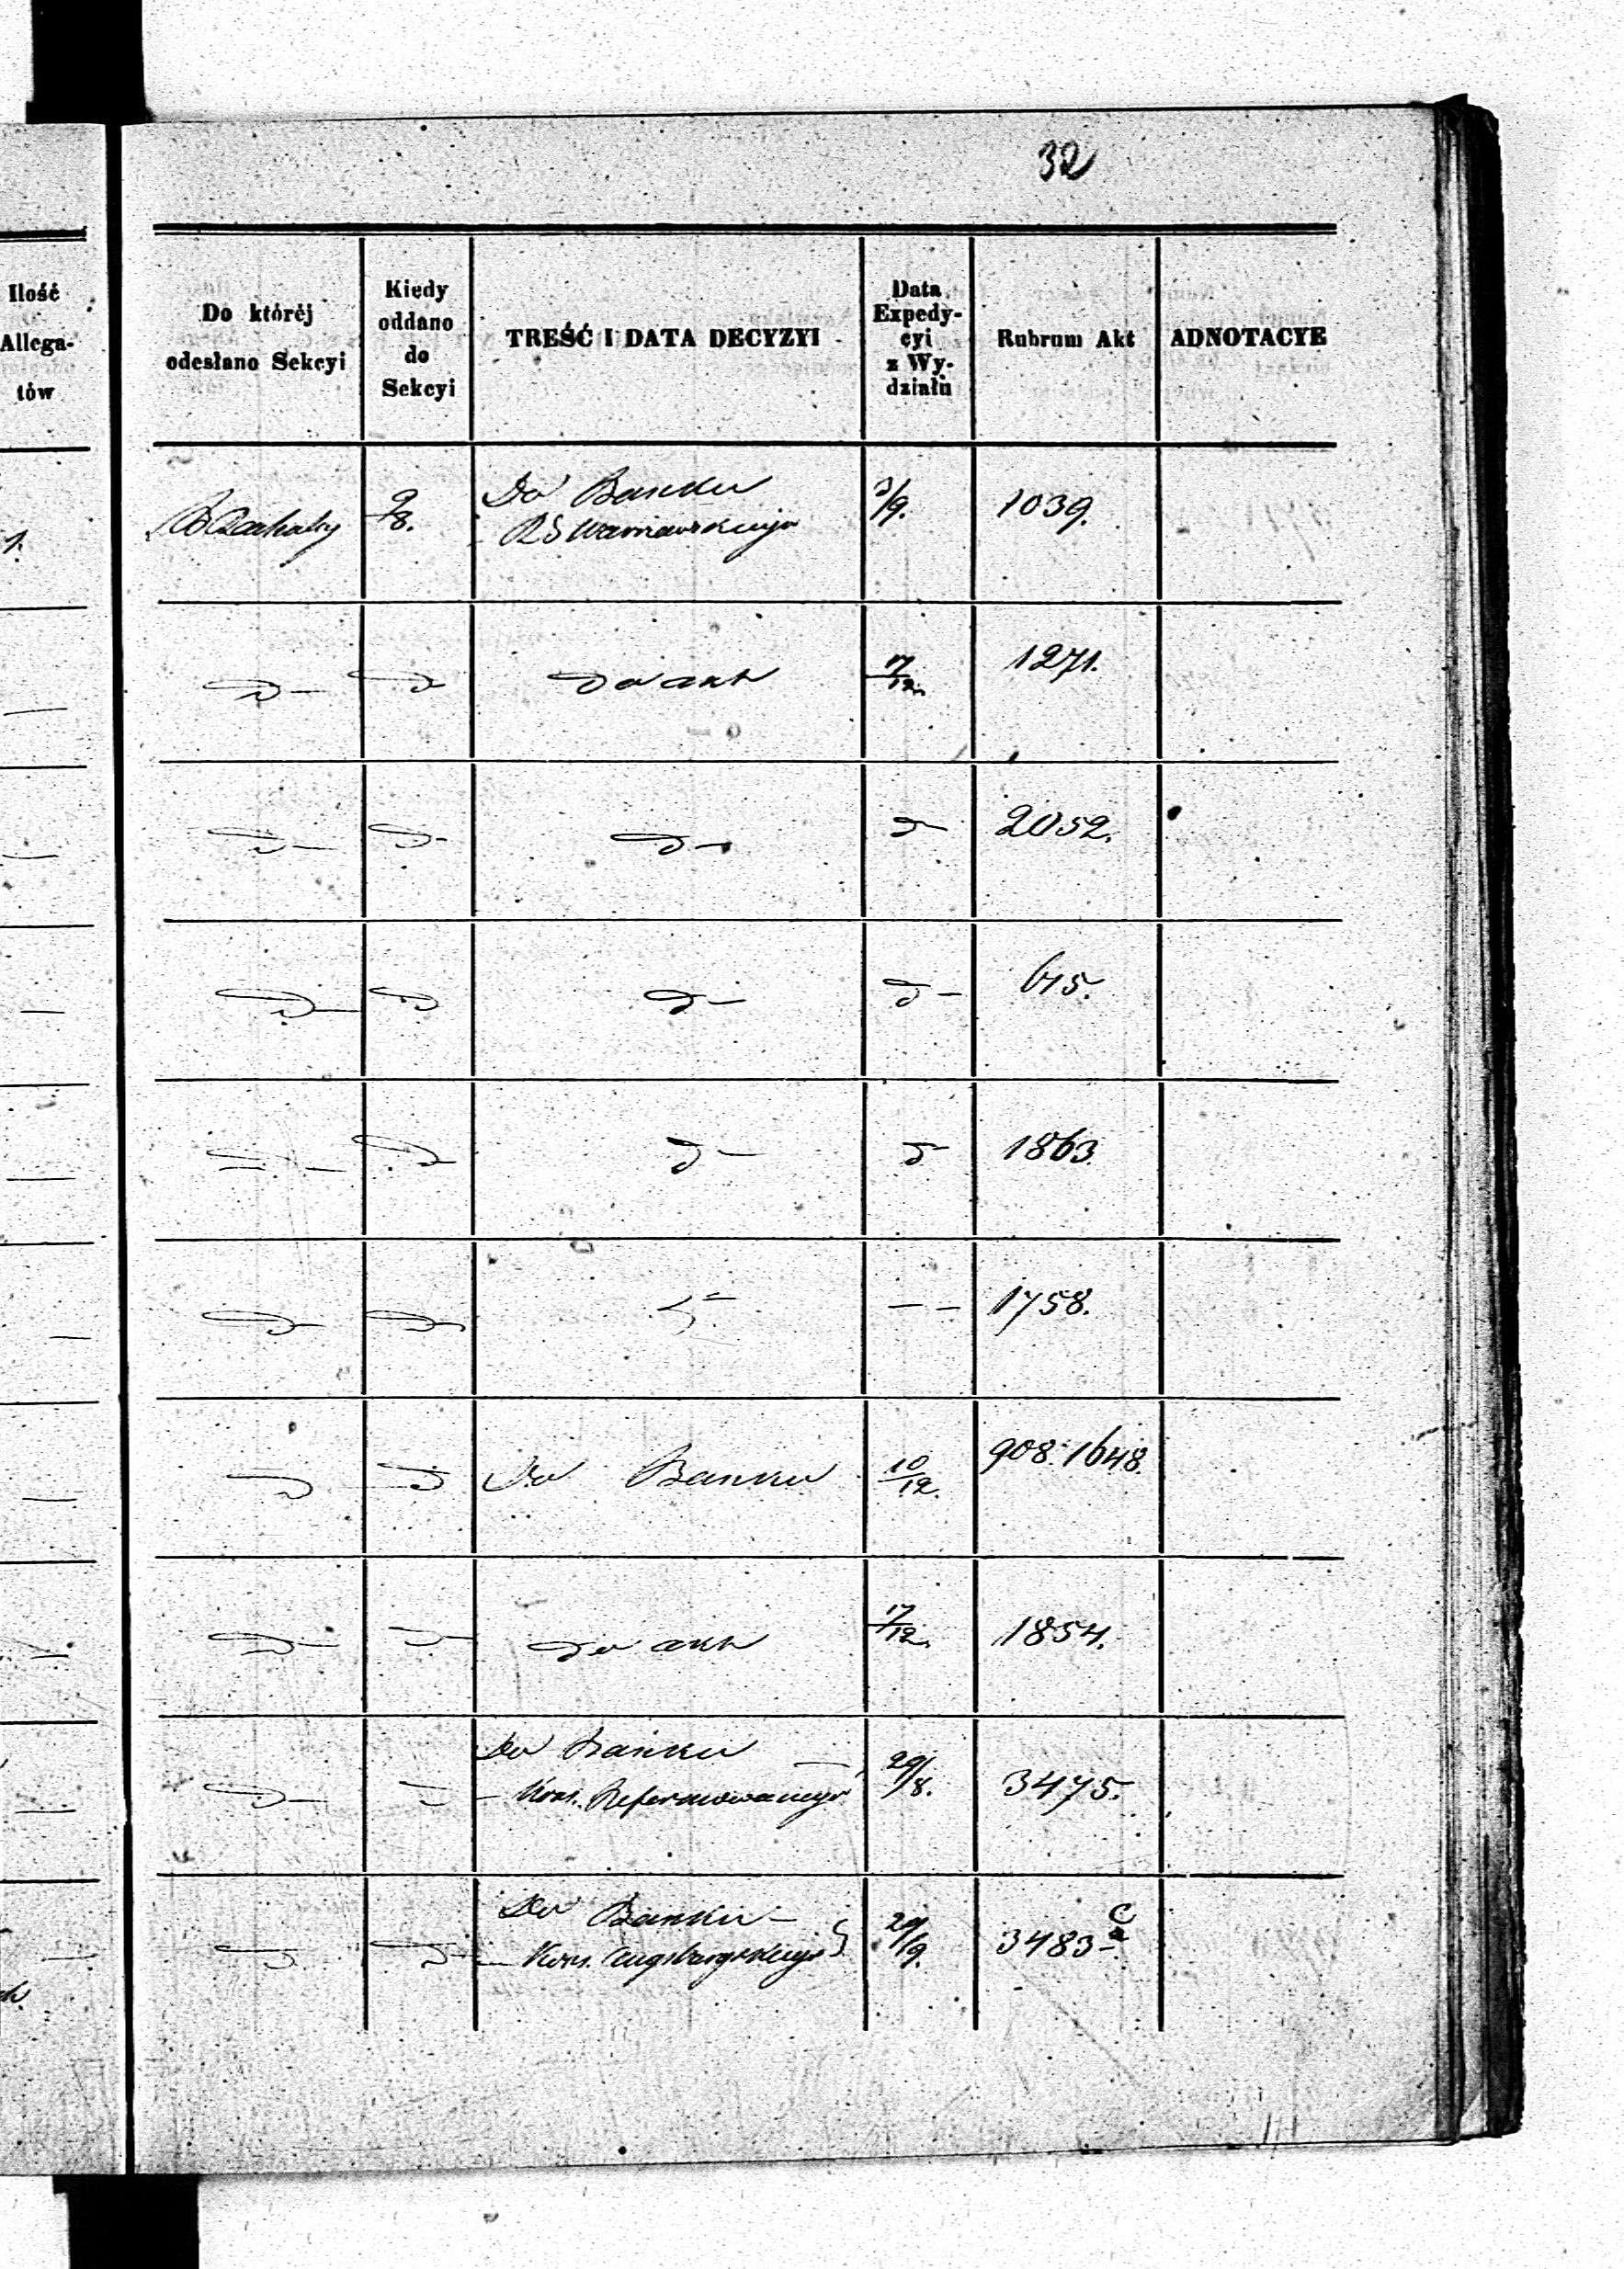 32
Ilość
Allega-
tów
Do któréj
odesłano Sekcyi
Kiedy
oddano
do
Sekcyi
TREŚĆ I DATA DECYZYI
Data
Expedy-
cyi
z Wy-
działu
Rubrum Akt
ADNOTACYE
1.
9/8.
Do Banku
RS Warszawskiego
3/9.
1039.
do akt
17/12.
1271.
2052.
615.
1863.
1758.
Do Banku
10/12.
908. 1648.
do akt
17/12.
1854.
Do Banku
Kons. Reformowanego
29/8.
3475.
Do Banku
Kons. Augsburgskiego
29/9.
3483